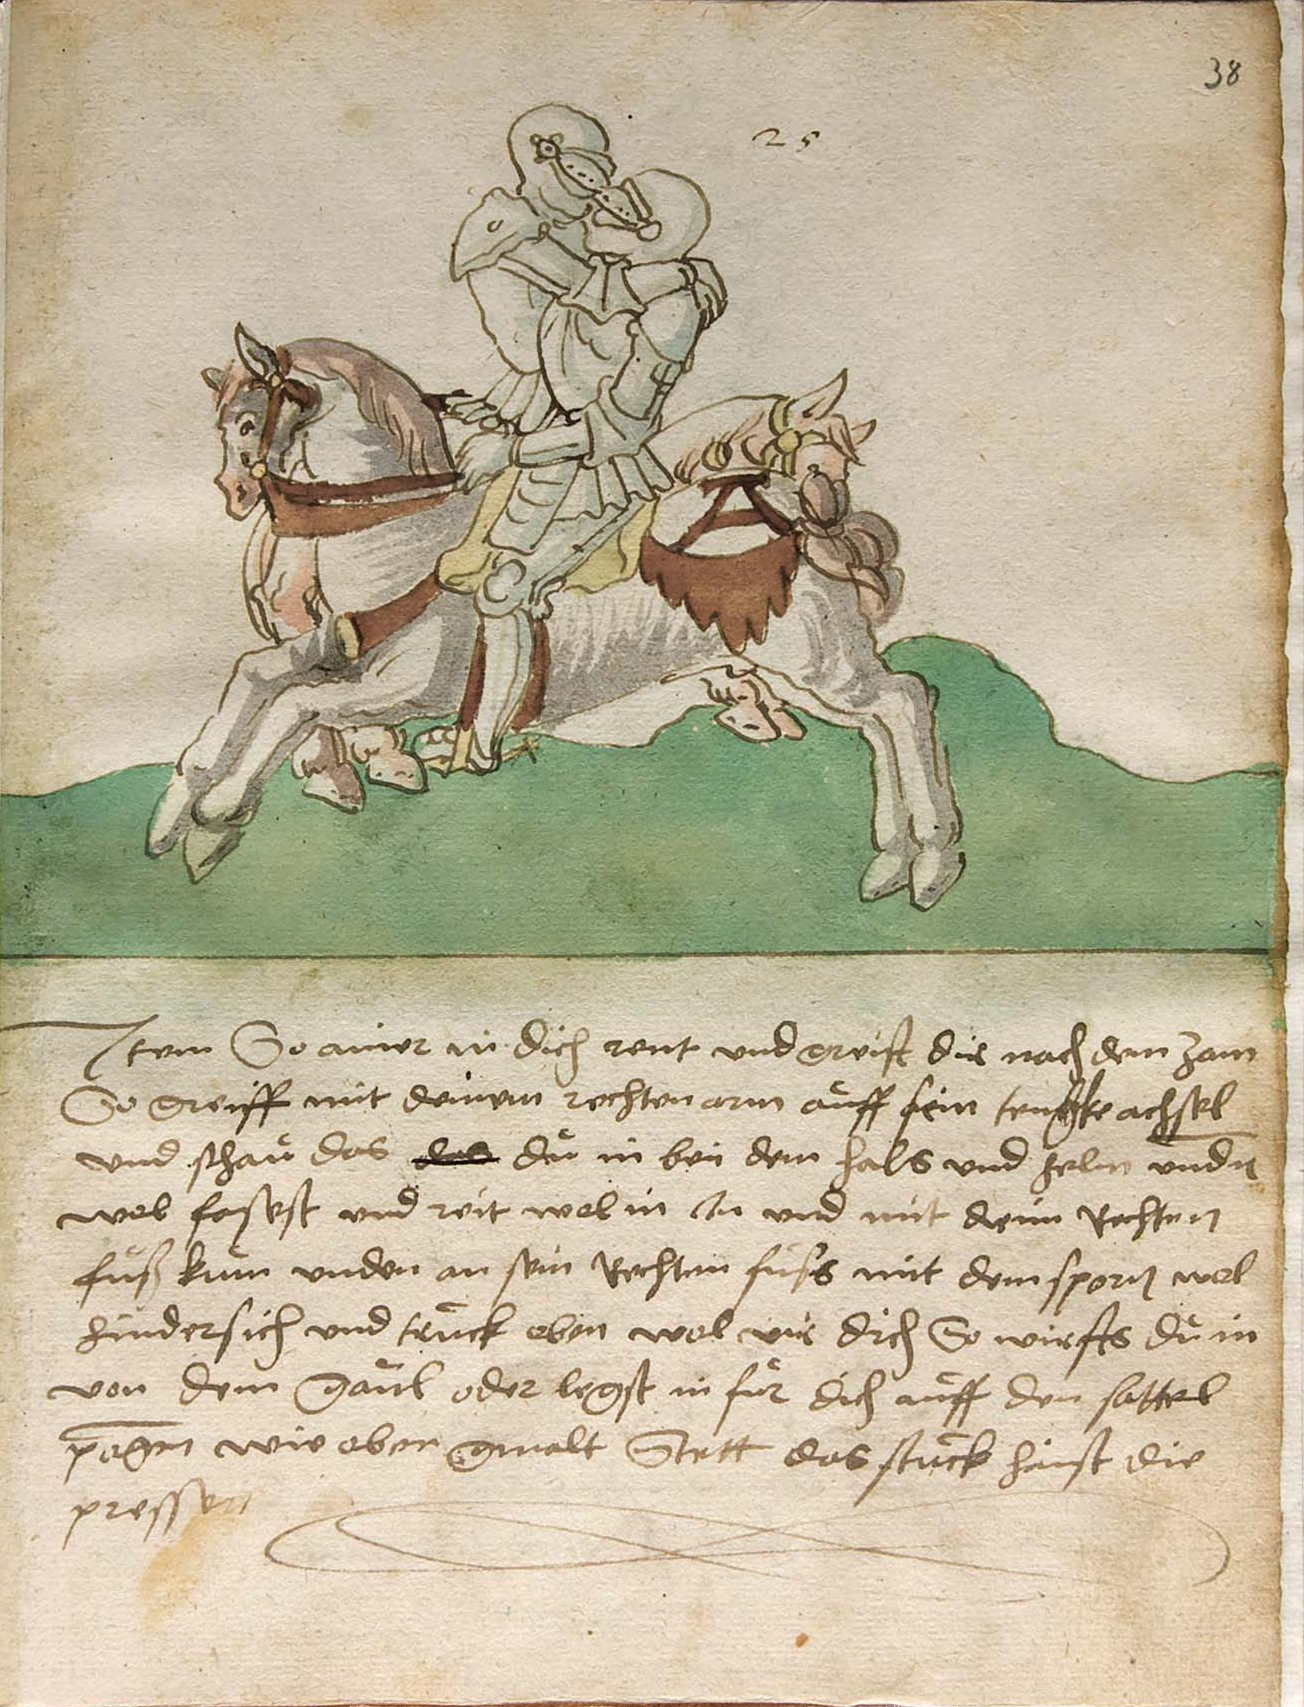 38
25
Item So ainer in dich rent und greift dir nach dem zam
So greiff mit deinem rechten arm aůff sein tencke achsel
und schaů das das dů in bei dem hals und helm
wol fasest und reit wol in In und mit deim Rechten
fůß kům unden an sein Rechten fůss mit dem sporn wol
hindersich und trůck oben wol vür dich So wirfts dů in
von dem gaůl oder legst in fůr dich aůff den sattel
pogen wie oben gmalt Stett das stůck haist die
presserin